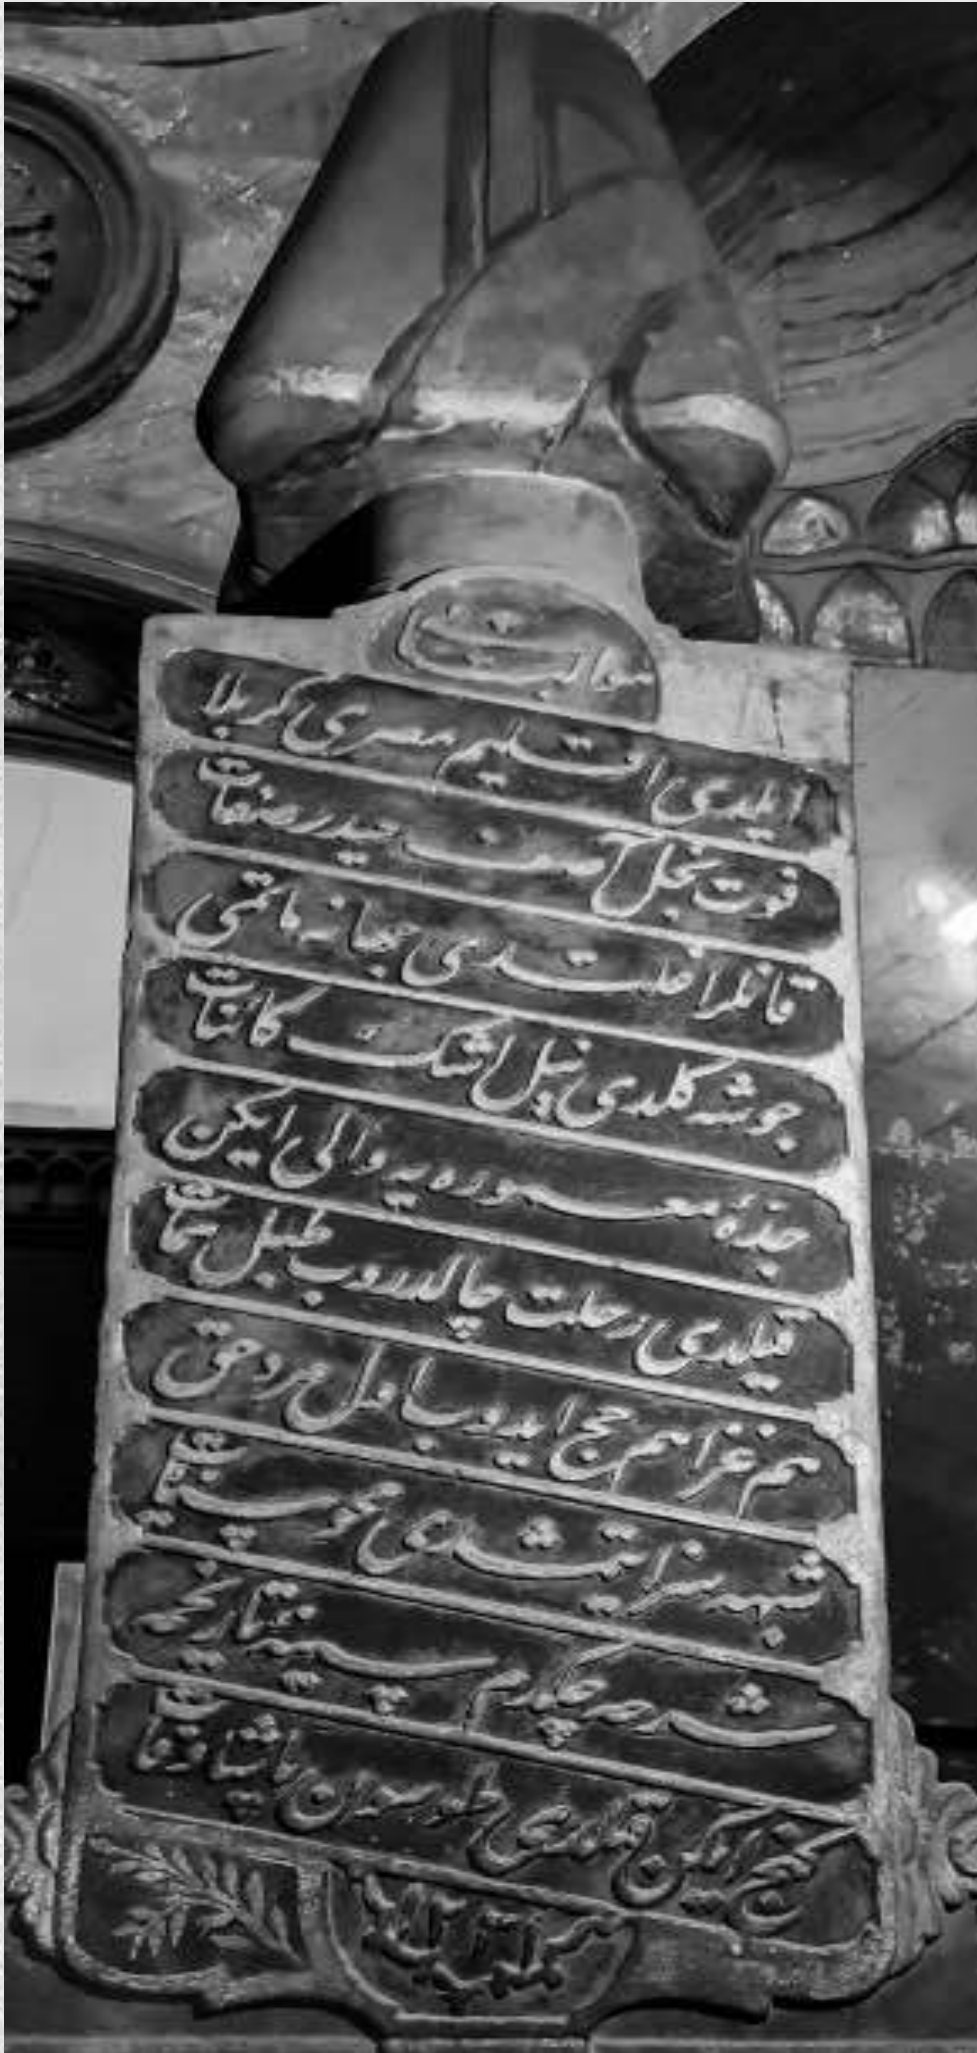 هو الباقى
ايلدى اقليم مصرى كربلا
فوت نجل آصف حيدر صفات
قانلر اغلتدى جهانه ماتمى
جوشه كلدى نيل اشك كائنات
جدهٔ معموره يه والى ايكن
قيلدى رحلت چالدروب طبل
هم غزا هم حج ايدوب اول مرد حق
شبهه سز ايتشدى محو سيئات
شرحه چكدم سينه تاريخمه
كنج ايكن قيلدى طوسون پاشا وفات
سنه ١٢٣١